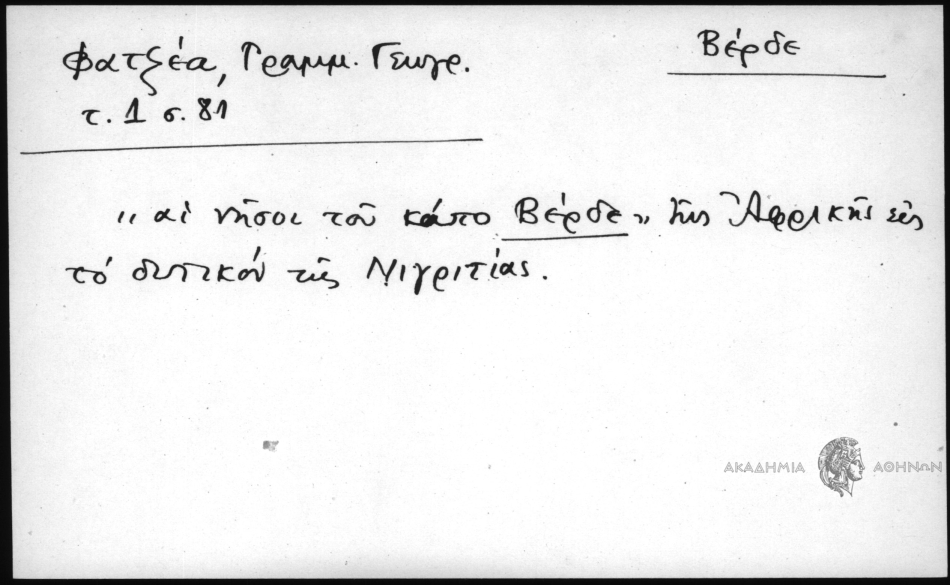 Βέρδε
Φατζέα, Γραμμ. Γεωγρ.
τ. 1 σ. 81
„ αἱ νῆσοι τοῦ κάπο Βέρδε „ τῆς Ἀφρικῆς εἰς
τό δυτικόν τῆς Νιγριτίας.
ΑΚΑΔΗΜΙΑ ΑΘΗΝΩΝ